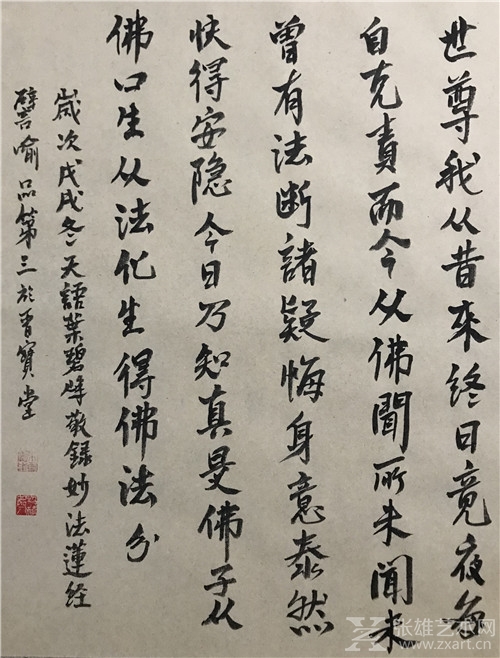 世尊我从昔來終日竟夜每
自克責而今从佛聞所未聞未
曾有法断諸疑悔身意泰然
快得安隐今日乃知真是佛子从
佛口生从法化生得佛法分
歲次戊戌冬天語葉碧峰敬録妙法蓮经
譬喻品第三於香寶堂
张雄艺术网
www.zxart.cn